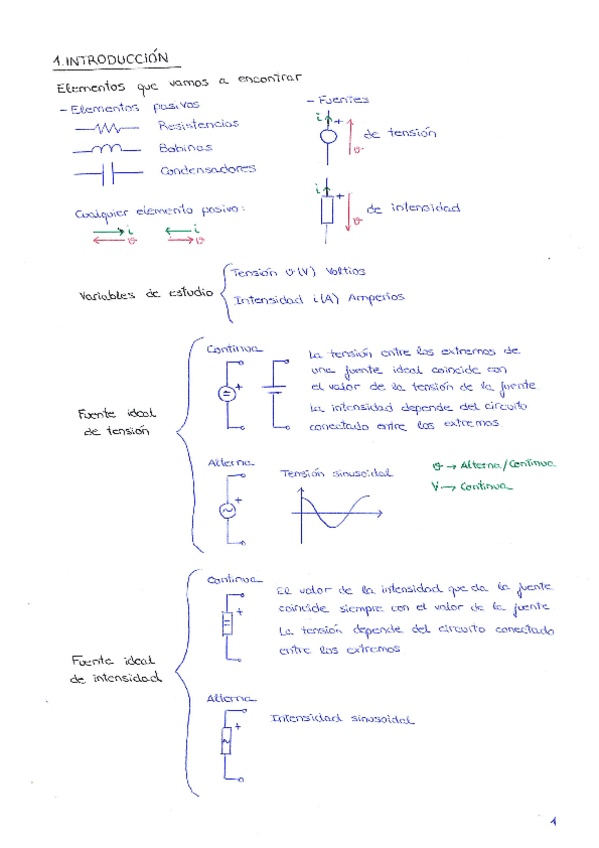 1. INTRODUCCIÓN
Elementos que vamos a encontrar
- Elementos pasivos
Resistencias
Bobinas
Condensadores
Cualquier elemento pasivo:
i
v
i
v
- Fuentes
i
+
v
de tensión
i
+
v
de intensidad
Variables de estudio
Tensión v (V) Voltios
Intensidad i (A) Amperios
Fuente ideal
de tensión
Continua
+
La tensión entre los extremos de
una fuente ideal coincide con
el valor de la tensión de la fuente
La intensidad depende del circuito
conectado entre los extremos.
Alterna
+
Tensión sinusoidal
v → Alterna/Continua
V → Continua
Fuente ideal
de intensidad
Continua
+
El valor de la intensidad que da la fuente
coincide siempre con el valor de la fuente
La tensión depende del circuito conectado
entre los extremos
Alterna
+
Intensidad sinusoidal
1